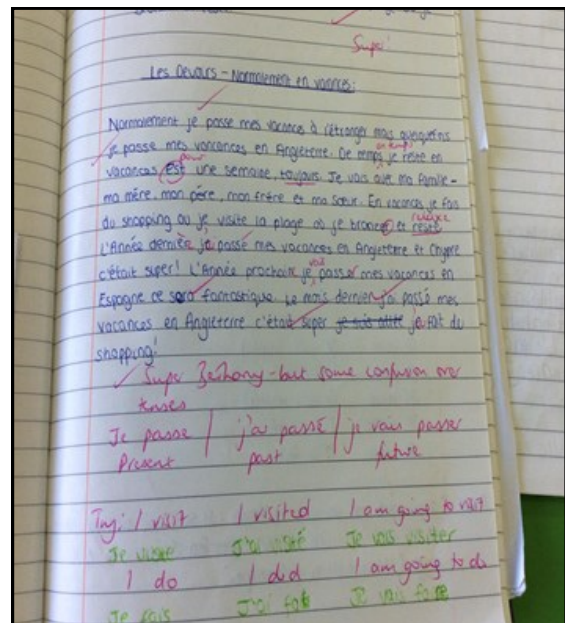 Super!
Les Devoirs - Normalement en vacances:
Normalement je passe mes vacances à l'étranger mais quelquefois
je passe mes vancances en Angleterre. De temps en temps je reste en
vacances est pour une semaine, toujours. Je vais avec ma famille -
ma mère, mon père, mon frère et ma sœur. En vacances je fais
du shopping ou je visite la plage où je bronze et reste relaxe
L'Année dernière je passé mes vacances en Angleterre et Chypre
c'était super! L'Année prochain je vais passer mes vacances en
Espagne ce sera fantastique. Le mois dernier j'ai passé mes
vacances en Angleterre c'était super je fait du
shopping!
Super Bethany - but some confusion over
tenses
Je passe | j'ai passé | je vais passer
Present past future
Try: I visit I visited I am going to visit
Je visite J'ai visité Je vais visiter
I do I did I am going to do
Je fais J'ai fait Je vais faire